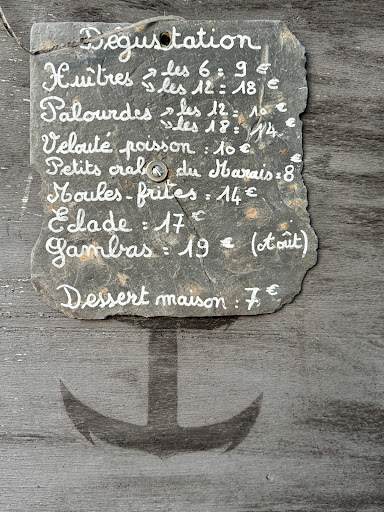 Dégustation
Huîtres → les 6 : 9 €
→ les 12 : 18 €
Palourdes → les 12 : 10 €
→ les 18 : 14 €
Velouté poisson : 10 €
Petits crabes du Marais : 8 €
Moules-frites : 14 €
Eclade : 17 €
Gambas : 19 € (Août)
Dessert maison : 7 €